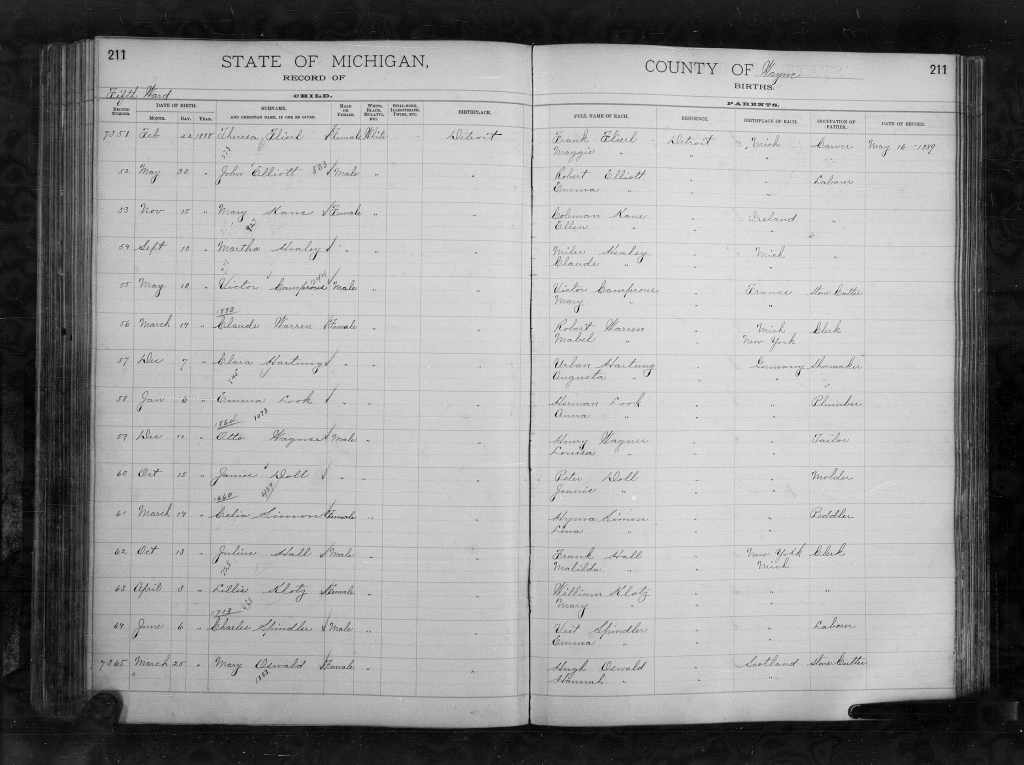 211
STATE OF MICHIGAN,
RECORD OF
Fifth Ward
CHILD.
RECORD NUMBER. DATE OF BIRTH. MONTH. DAY. YEAR. SURNAME, AND CHRISTIAN NAME, IF ONE BE GIVEN. MALE OR FEMALE. WHITE, BLACK, MULATTO, ETC. STILL-BORN, ILLEGITIMATE, TWINS, ETC. BIRTHPLACE.
7351 Feb 22 1888 Theresa Flierl Female White Detroit
52 May 30 " John Elliott 583 Male " "
53 Nov 15 " Mary Kane Female " "
54 Sept 10 " Martha Healey " " "
55 May 10 " Victor Camprone Male " "
56 March 14 " Claude Warren Female " "
57 Dec 7 " Clara Hartung " " "
58 Jan 6 " Emma Look " " "
1073
59 Dec 11 " Otto Wagner Male " "
60 Oct 15 " James Doll " " "
61 March 14 " Celia Simon Female " "
62 Oct 13 " Julius Hall Male " "
63 April 8 " Lillie Klotz Female " "
64 June 6 " Charles Spindler Male " "
7365 March 25 " Mary Oswald Female " "
COUNTY OF Wayne
211
BIRTHS.
PARENTS.
FULL NAME OF EACH. RESIDENCE. BIRTHPLACE OF EACH. OCCUPATION OF FATHER. DATE OF RECORD.
Frank Flierl Detroit Mich Carver May 16-1889
Maggie " " "
Robert Elliott " " Laborer
Emma " "
Coleman Kane " Ireland "
Ellen " "
Miles Healey " Mich "
Claude " "
Victor Camprone " France Stone Cutter
Mary " "
Robert Warren " Mich Clerk
Mabel " New York
Urban Hartung " Germany Shomaker
Augusta " "
Herman Look " " Plumber
Anna " "
Henry Wagner " " Tailor
Louisa " "
Peter Doll " " Molder
Jennie " "
Hyman Simon " " Peddler
Lina " "
Frank Hall " New York Clerk
Matilda " Mich
William Klotz " " "
Mary " "
Veit Spindler " " Laborer
Emma " "
Hugh Oswald " Scotland Stone Cutter
Hannah " "